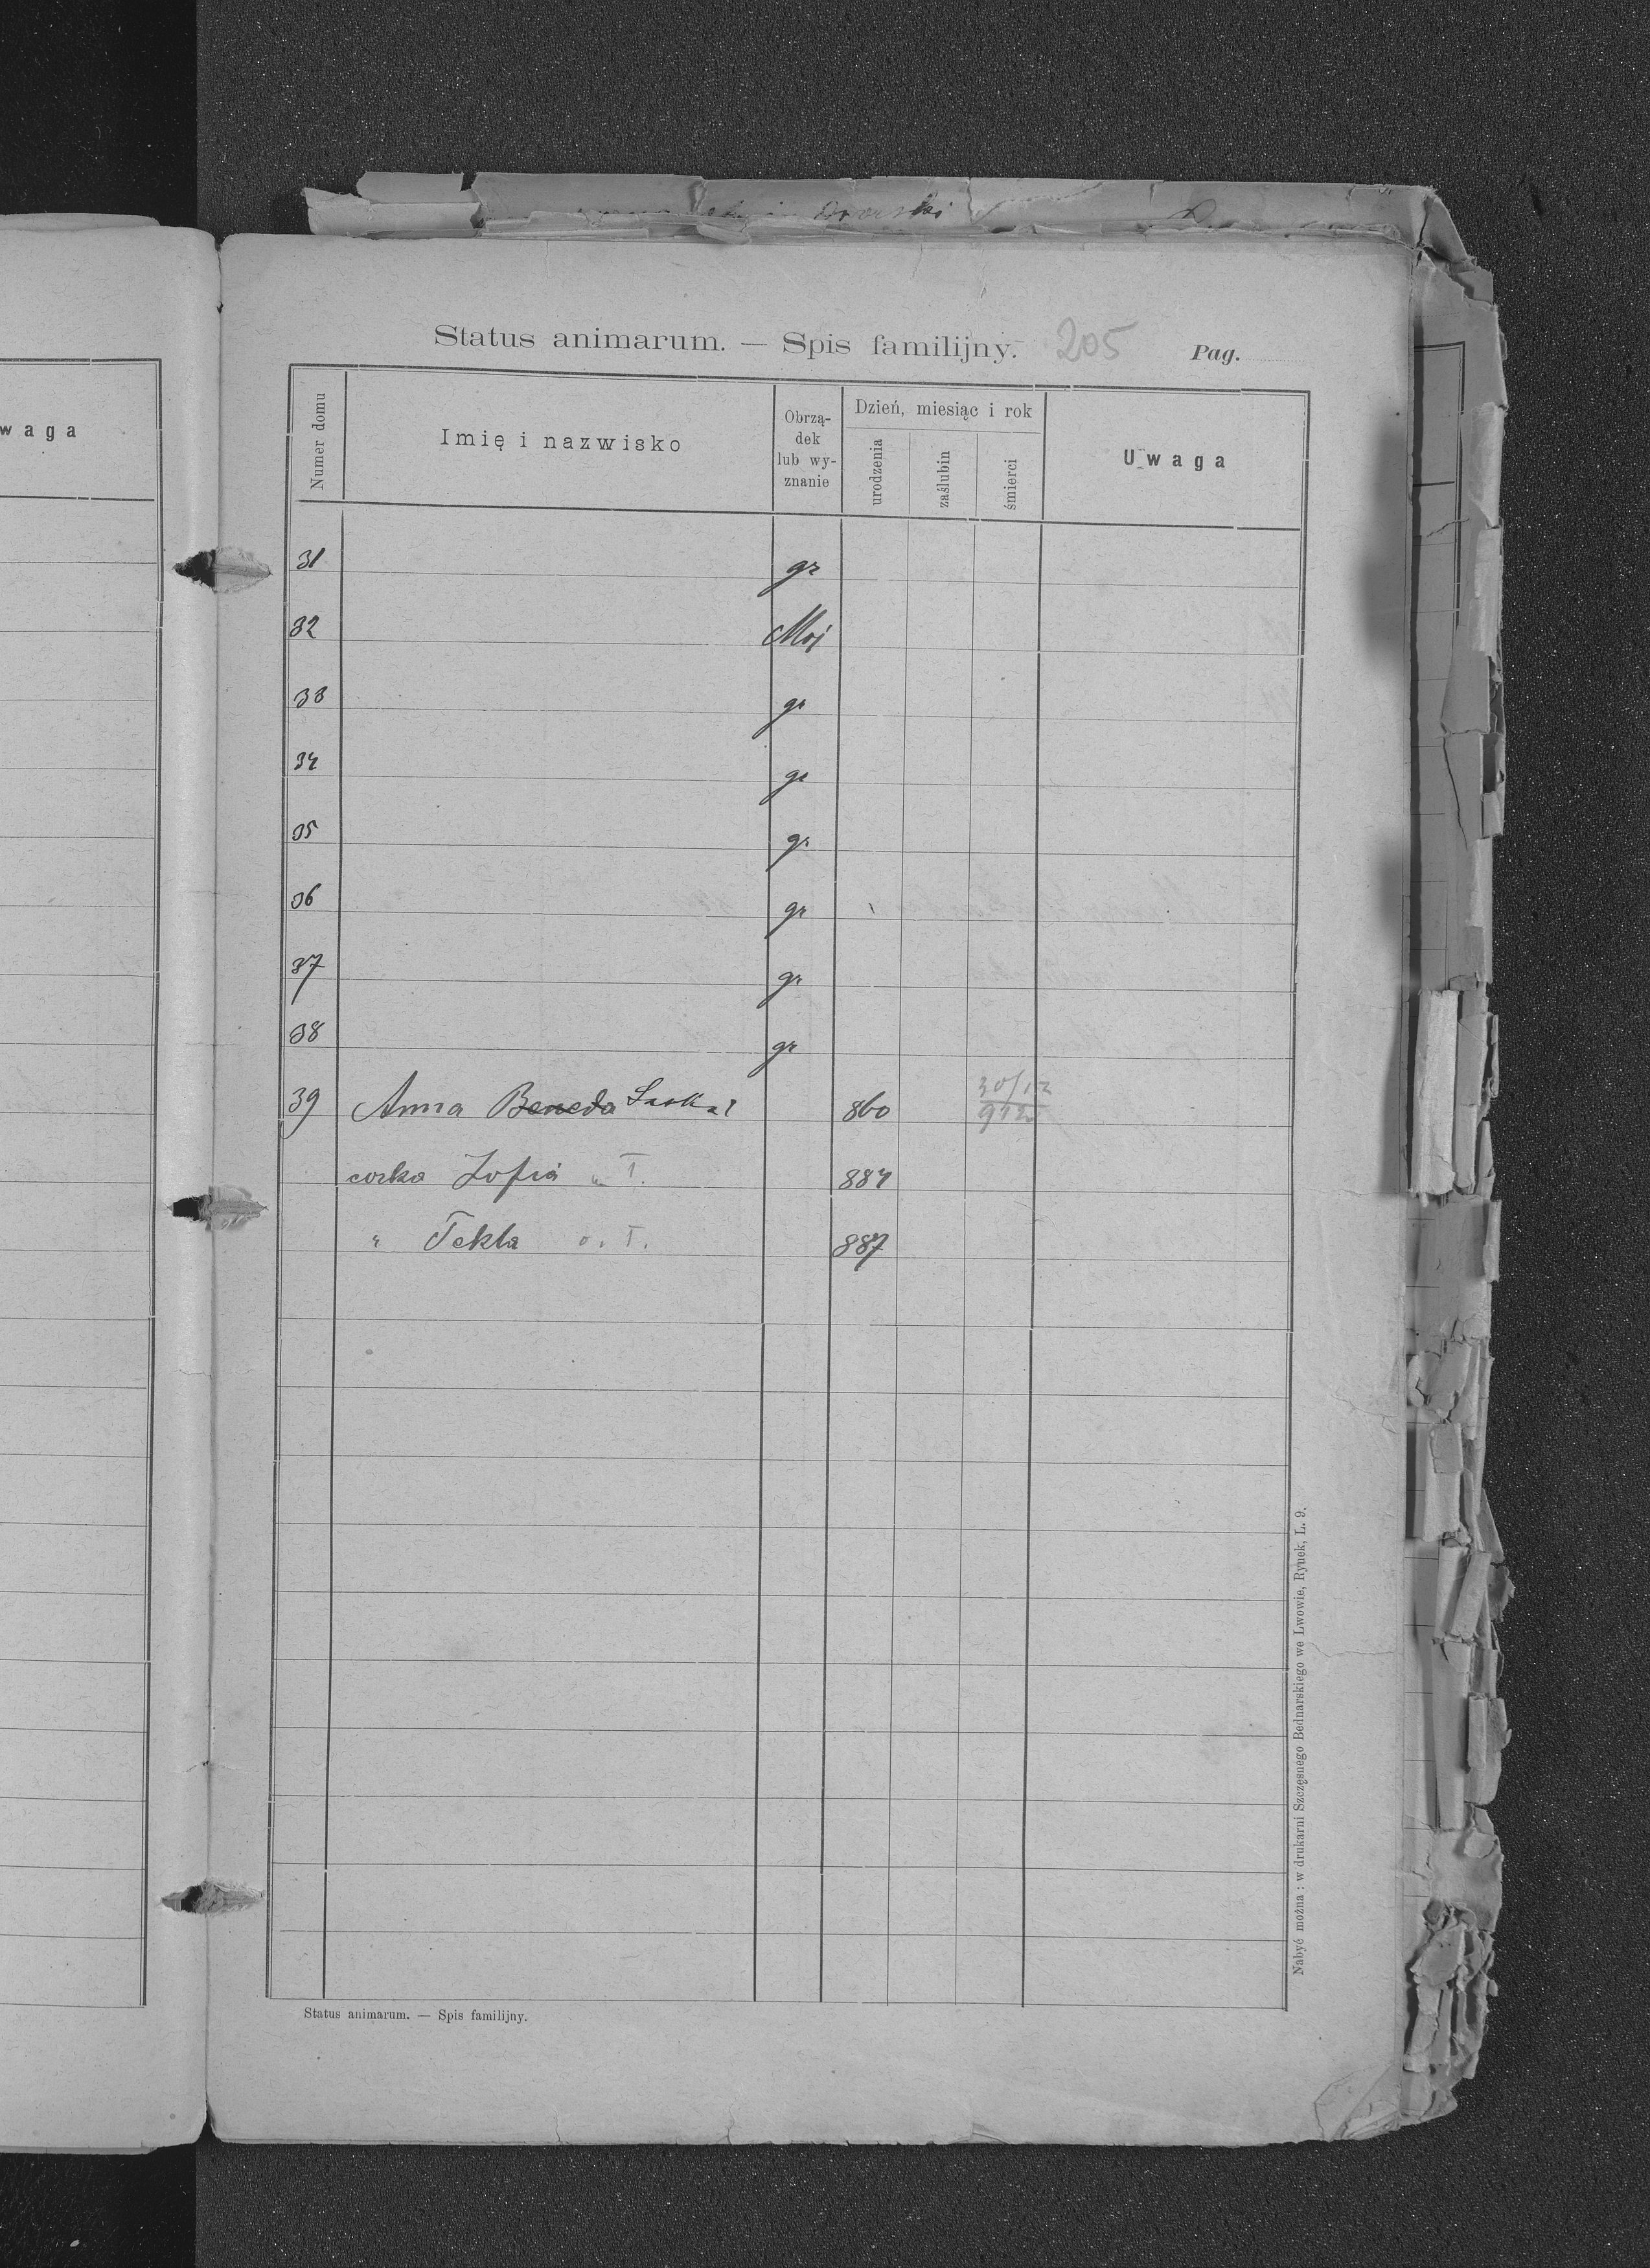 waga
Status animarum. — Spis familijny. 205 Pag.
Numer domu
Imię i nazwisko
Obrzą-
dek
lub wy-
znanie
Dzień, miesiąc i rok
urodzenia
zaślubin
śmierci
Uwaga
31 gr
32 Moj
33 gr
34 gr
35 gr
36 gr
37 gr
38 gr
39 Anna Beneda 860 30/12
córka Zofia „ T. 884
" Tekla o. T. 887
Nabyć można: w drukarni Szczęsnego Bednarskiego we Lwowie, Rynek, L. 9.
Status animarum. — Spis familijny.